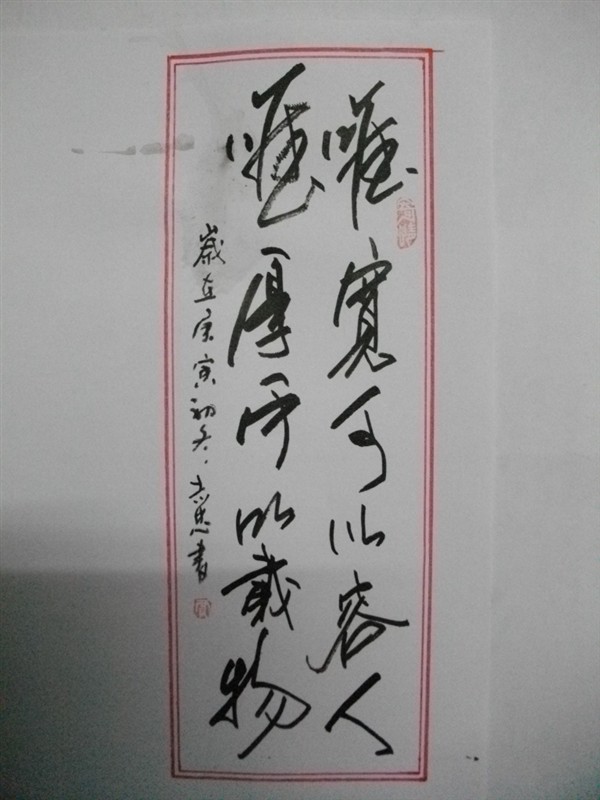 唯寬可以容人
唯厚可以載物
歲在庚寅初冬 書